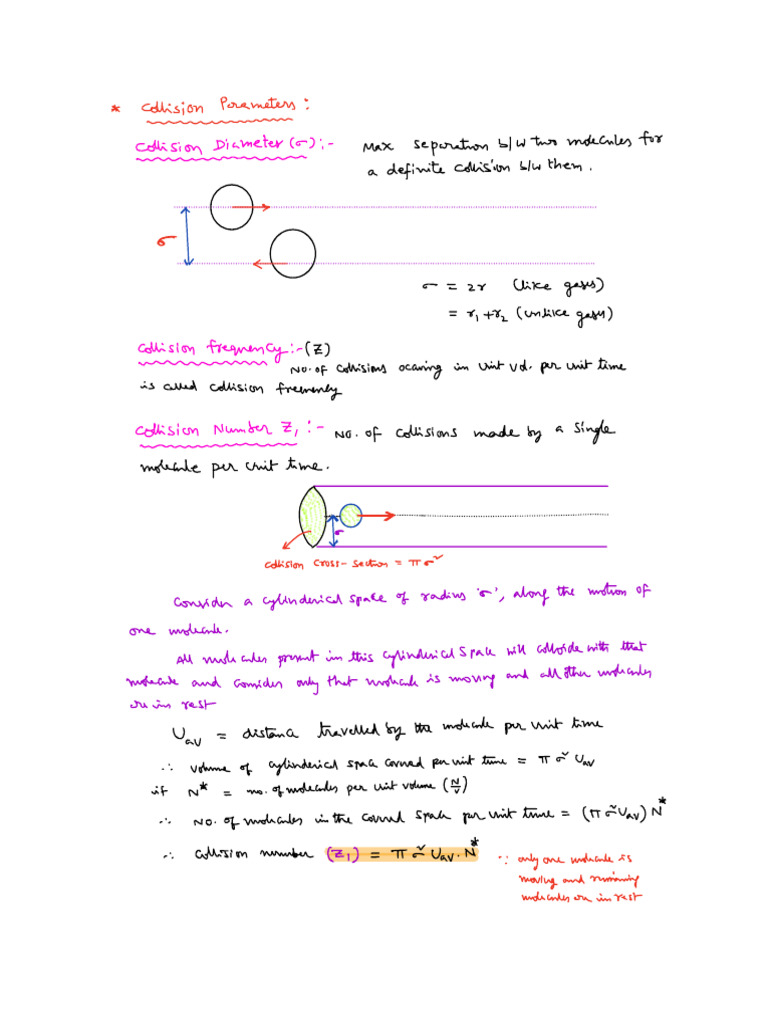 * Collision Parameters :
Collision Diameter (σ) :- Max separation b/w two molecules for
a definite collision b/w them.
σ
σ = 2r (like gases)
= r₁+r₂ (unlike gases)
Collision frequency :- (Z)
No. of collisions occuring in unit vol. per unit time
is called collision frequency
Collision Number Z₁ :- No. of collisions made by a single
molecule per unit time.
σ
collision cross-section = πσ²
Consider a cylinderical space of radius 'σ', along the motion of
one molecule.
All molecules present in this cylinderical space will collide with that
molecule and consider only that molecule is moving and all other molecules
are in rest
U_av = distance travelled by the molecule per unit time
∴ volume of cylinderical space covered per unit time = πσ² U_av
if N* = no. of molecules per unit volume (N/V)
∴ No. of molecules in the covered space per unit time = (πσ²U_av) N*
∴ Collision number (Z₁) = πσ² U_av . N*
∵ only one molecule is
moving and remaining
molecules are in rest